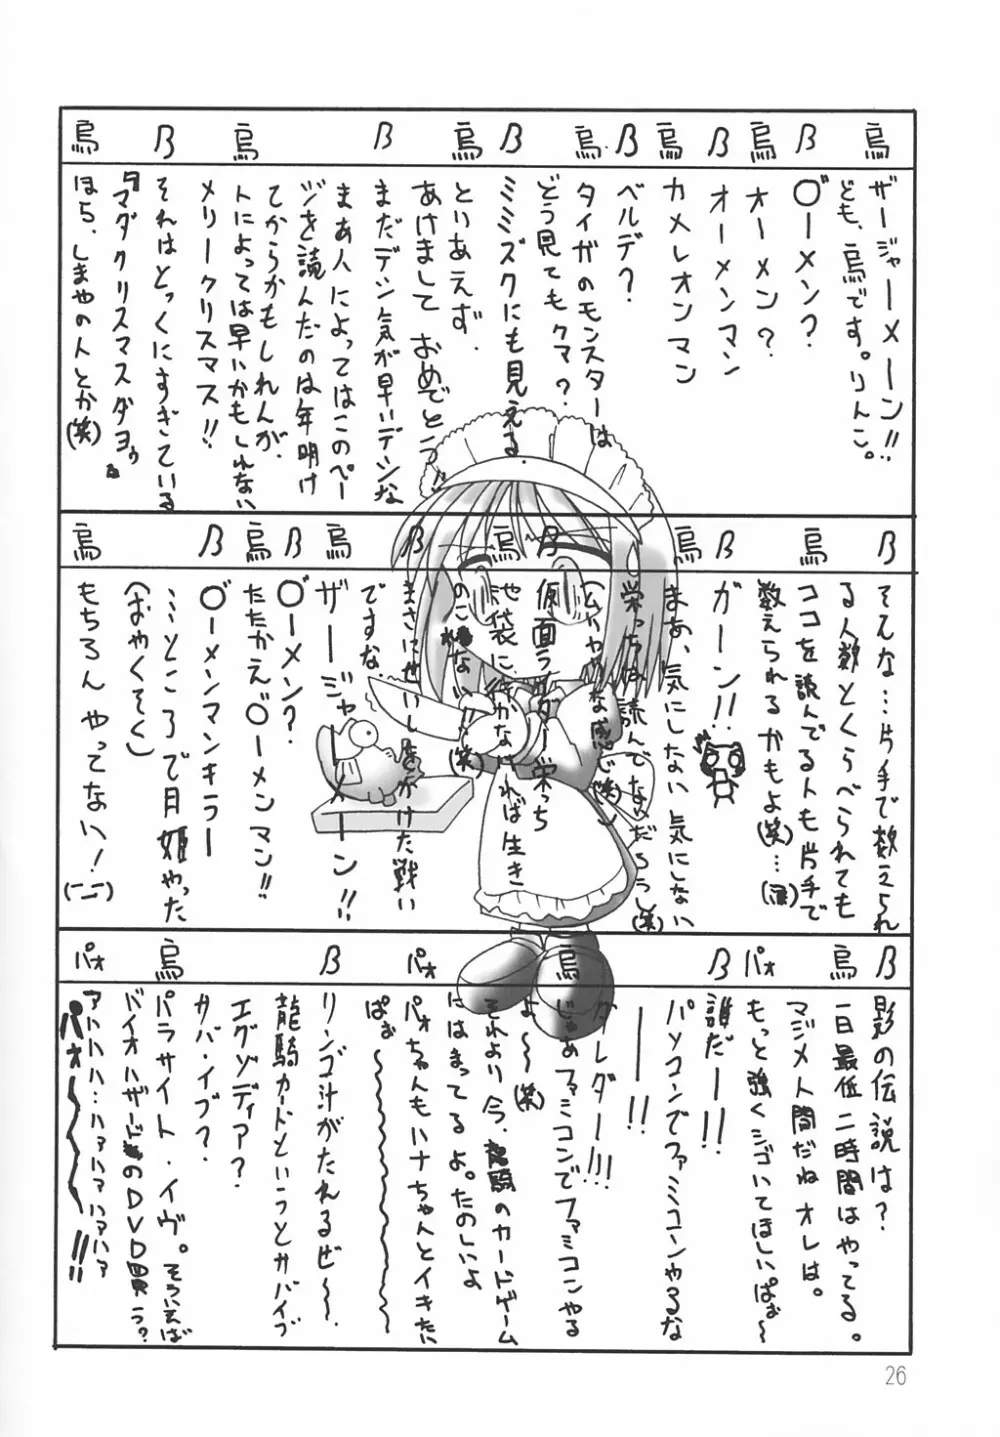 烏
ザージャーーメーーン!!
ども、烏です。りんこ。
B
〇ーメン?
烏
オーメン?
B
オーメンマン
烏
カメレオンマン
B
ベルデ?
烏
タイガのモンスターは
どう見てもクマ?
B
ミミズクにも見える
烏
といあえず、
あけまして おめでとう!!
B
まだデン気が早いデンな
烏
まぁ人によってはこのペー
ジを読んだのは年明け
てからかもしれんが、
トによっては早いかもしれない
メリークリスマス!!
B
それはとっくにすぎている
『マダクリスマスダヨゥ』
烏
ほら、しまやの人とか(笑)
B
そそんな…片手で数えられ
る人数とくらべられても
烏
ココを読んでるトも片手で
数えられるかもよ(笑)…(涙)
B
ガーン!!
烏
まあ、気にしない気にしない
栄っちは読んでないだろうし(笑)
B
仮面ライダー栄っち
烏
池袋に行かなければ生き
のこれない!!(笑)
B
まさに せいしをかけた戦い
ですな
烏
ザージャーメーン!!
B
〇ーメン?
烏
たたかえ〇ーメンマン!!
B
〇ーメンマンキラー
…ところで月姫やった
(おやくそく)
烏
もちろんやってない!(ーー)
B
影の伝説は?
烏
一日最低二時間はやってる。
マジメ人間だねオレは。
パォ
もっと強くシゴいてほしいぱぉ〜
B
誰だーー!!
パソコンでファミコンやるな
ーーー!!
ダレダー!!!
烏
じゃあファミコンでファミコンやる
よ〜〜(笑)
それより今、龍騎のカードゲーム
にはまってるよ。たのしいよ
パォ
パォちゃんもハナちゃんとイキたい
ぱぉ〜〜〜〜
B
リンゴ汁がたれるぜ〜〜
龍騎カードというとサバイブ
エグゾディア?
サバ・イブ?
烏
パラサイト・イヴ。そういえば
バイオハザードのDVD買う?
パォ
アハハハハ…ハァハァハァハァ
パォ〜〜〜〜!!
26